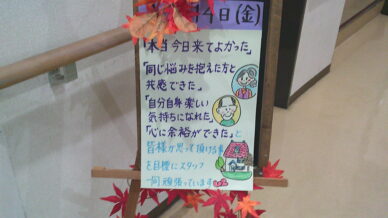 14日(金)
「本当今日来てよかった」
「同じ悩みを抱えた方と
共感できた」
「自分自身楽しい
気持ちになれた」
「心に余裕ができた」と
皆様が思って頂ける事
を目標にスタッフ
一同頑張っています